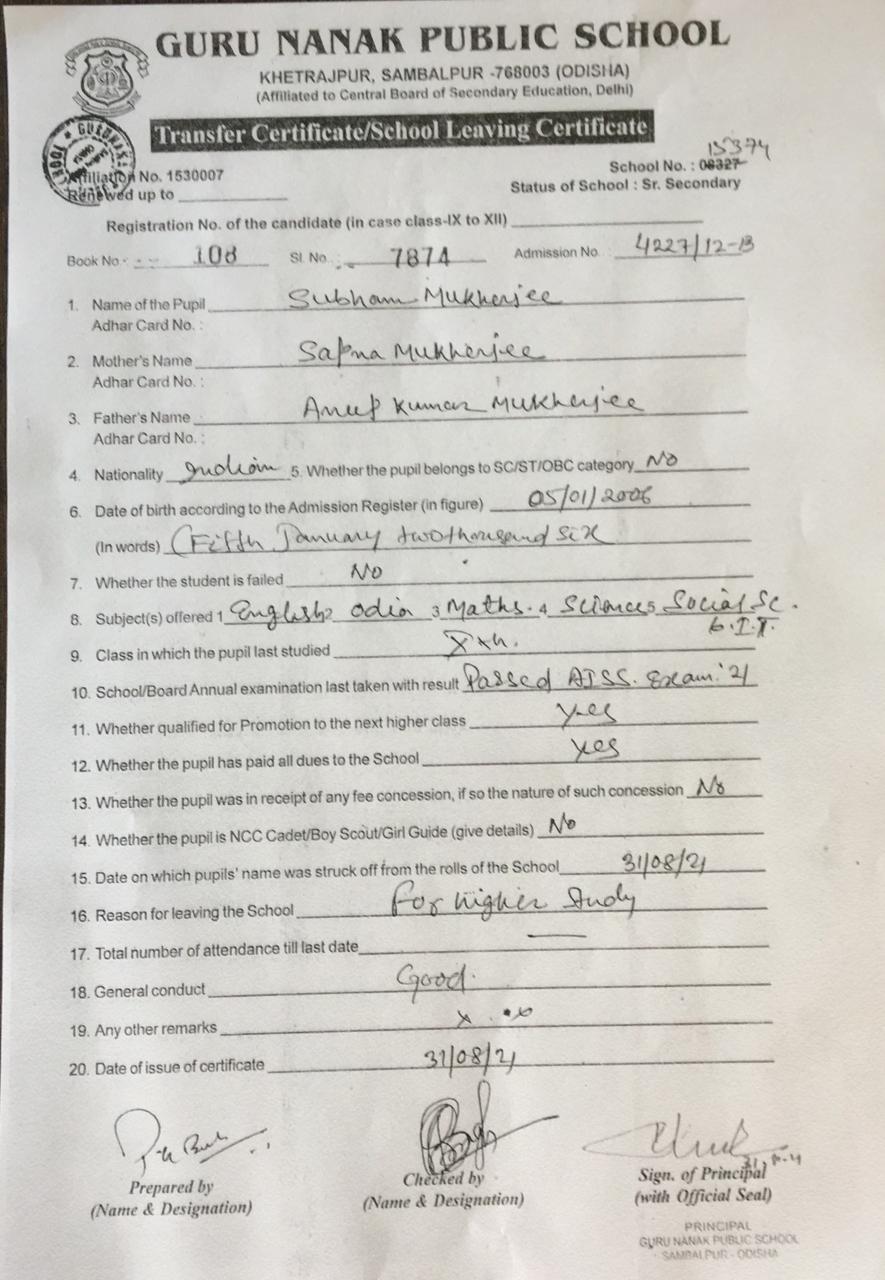 GURU NANAK PUBLIC SCHOOL
KHETRAJPUR, SAMBALPUR -768003 (ODISHA)
(Affiliated to Central Board of Secondary Education, Delhi)
Transfer Certificate/School Leaving Certificate
15374
Affiliation No. 1530007 School No. : 08327
Renewed up to Status of School : Sr. Secondary
Registration No. of the candidate (in case class-IX to XII)
Book No 108 Sl. No. 7874 Admission No 4227/12-13
1. Name of the Pupil Subham Mukherjee
Adhar Card No. :
2. Mother's Name Sapna Mukherjee
Adhar Card No. :
3. Father's Name Anup Kumar Mukherjee
Adhar Card No. :
4. Nationality Indian 5. Whether the pupil belongs to SC/ST/OBC category No
6. Date of birth according to the Admission Register (in figure) 05/01/2006
(In words) (Fifth January two thousand six
7. Whether the student is failed No
8. Subject(s) offered 1 English 2 Odia 3 Maths. 4 Science 5 Social Sc.
6. I.T.
9. Class in which the pupil last studied Xth.
10. School/Board Annual examination last taken with result Passed AISS. Exam.'21
11. Whether qualified for Promotion to the next higher class yes
12. Whether the pupil has paid all dues to the School yes
13. Whether the pupil was in receipt of any fee concession, if so the nature of such concession No
14. Whether the pupil is NCC Cadet/Boy Scout/Girl Guide (give details) No
15. Date on which pupils' name was struck off from the rolls of the School 31/08/21
16. Reason for leaving the School For higher Study
17. Total number of attendance till last date —
18. General conduct Good.
19. Any other remarks x . x
20. Date of issue of certificate 31/08/21
Prepared by Checked by Sign. of Principal
(Name & Designation) (Name & Designation) (with Official Seal)
PRINCIPAL
GURU NANAK PUBLIC SCHOOL
SAMBALPUR - ODISHA